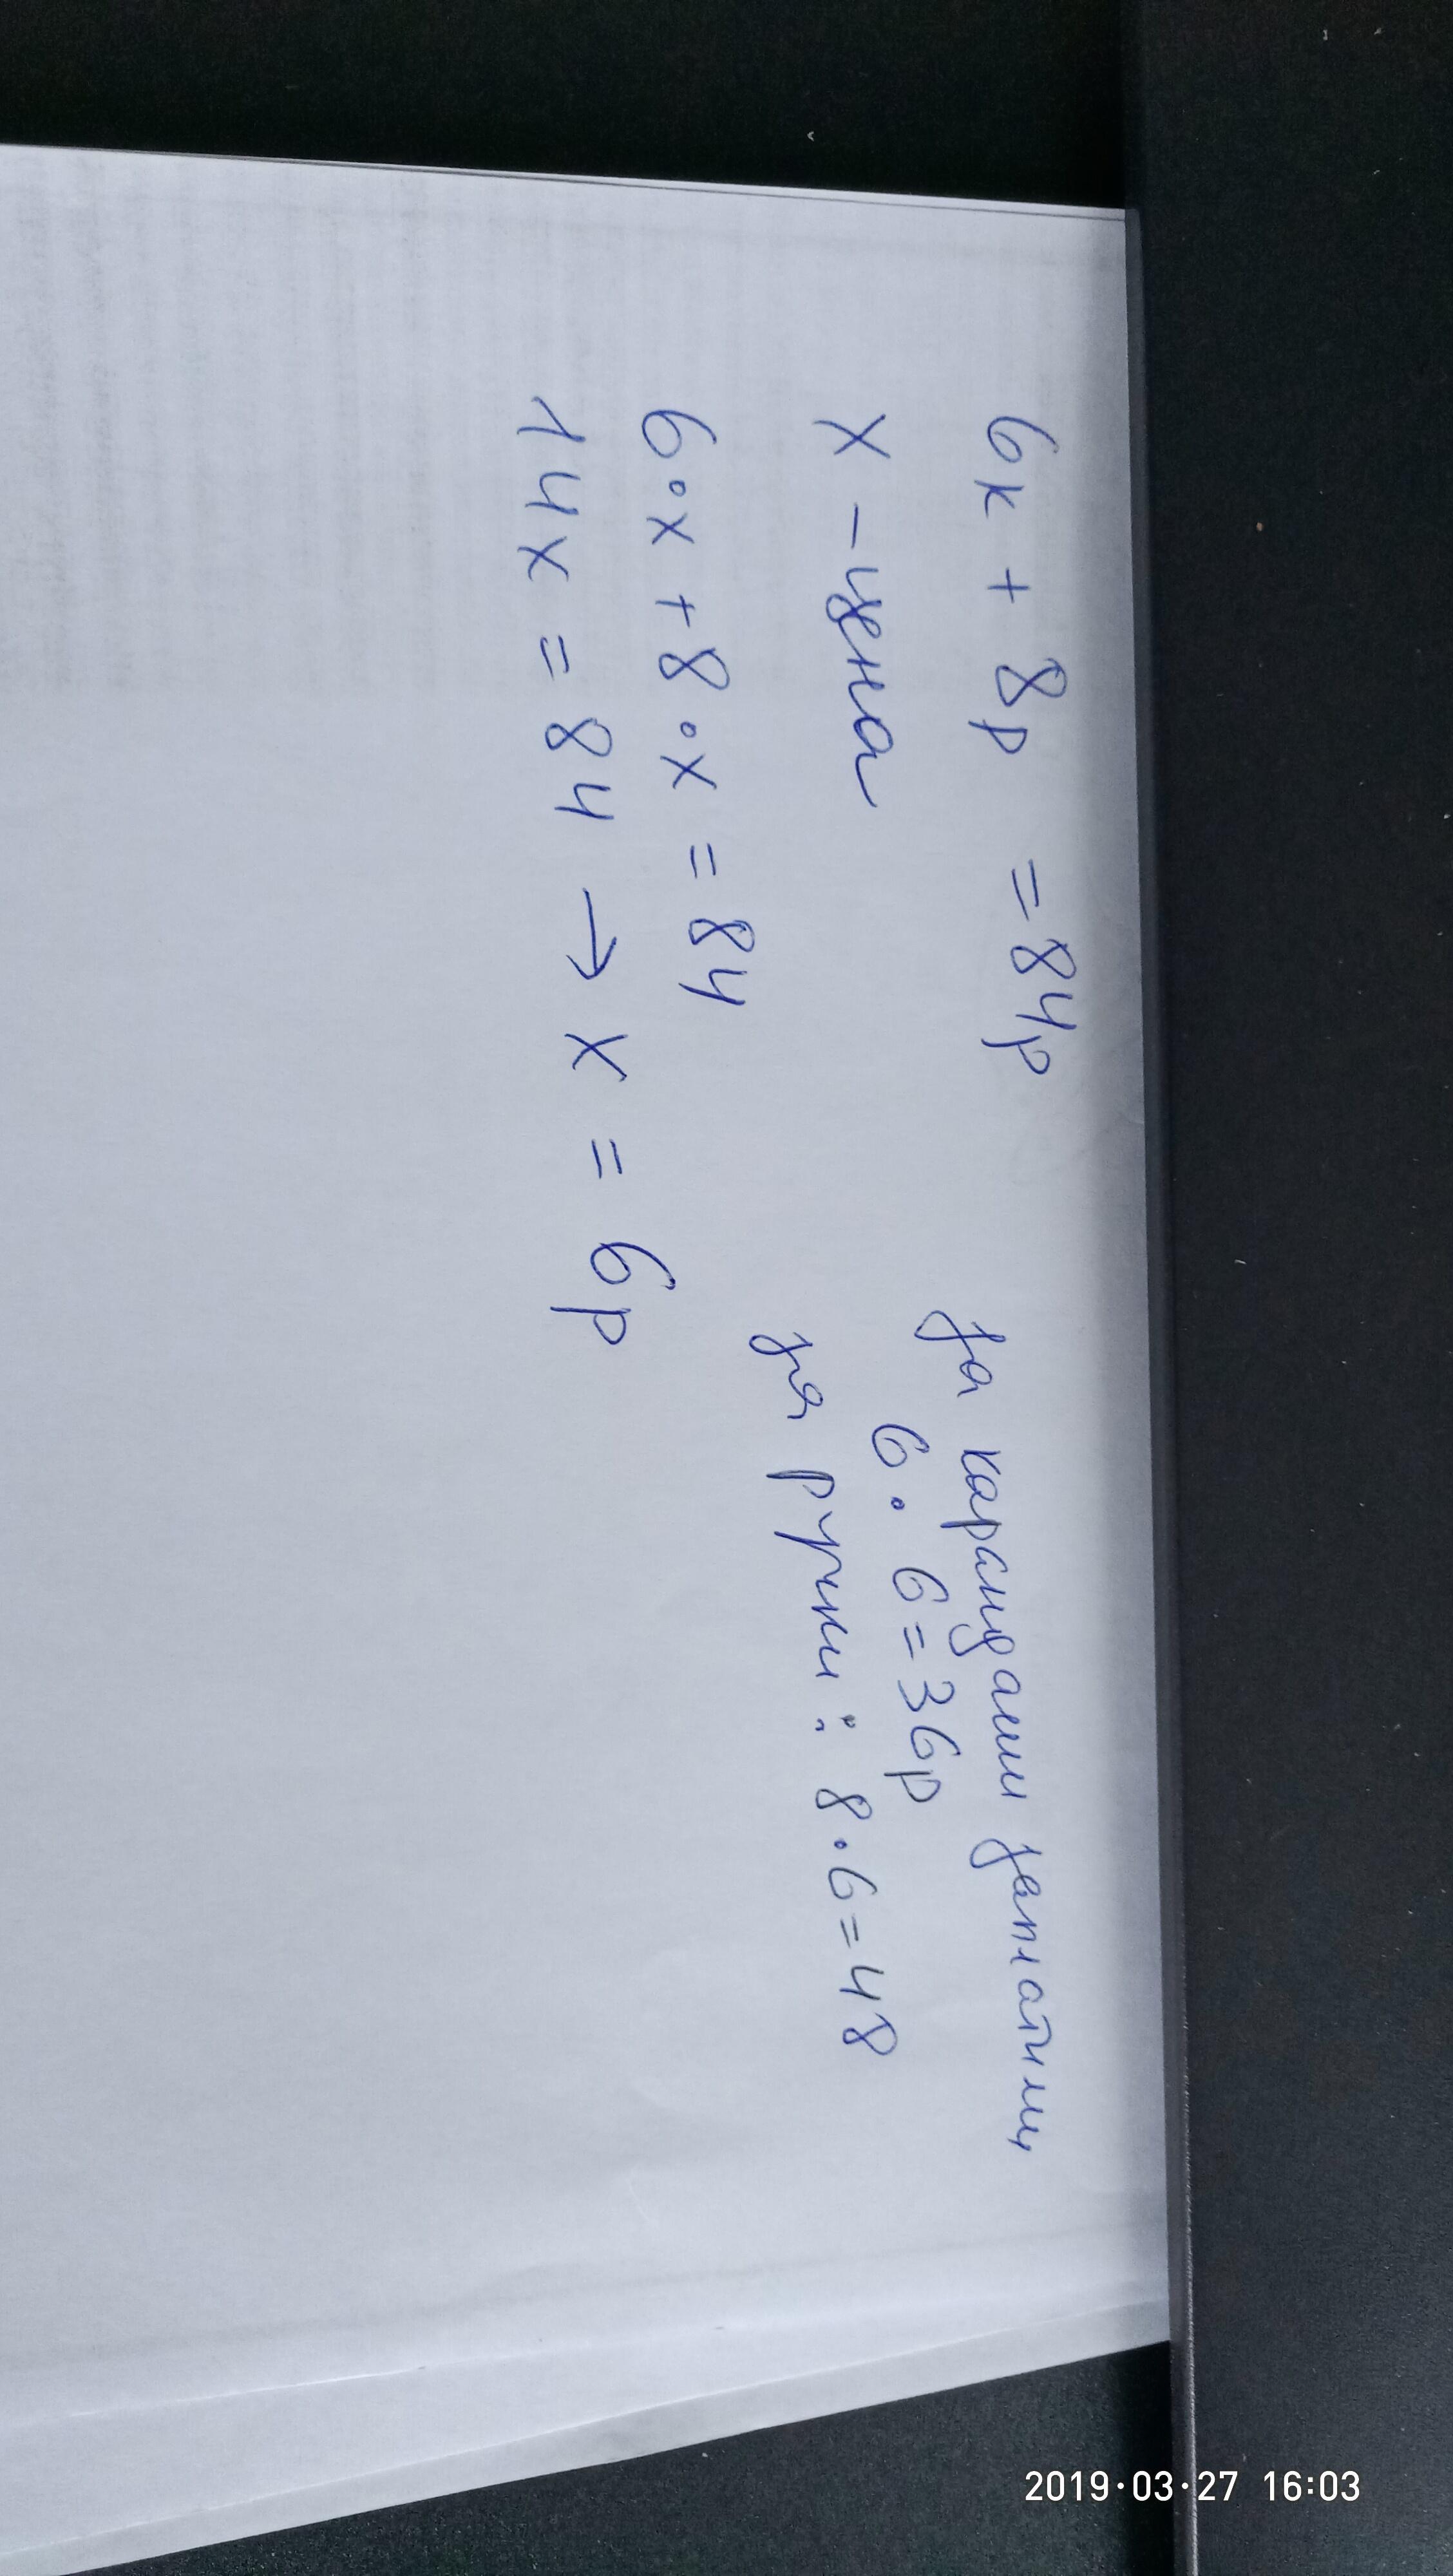 6к + 8р = 84р
х - цена
6·х + 8·х = 84
14х = 84 → х = 6р
за карандаши заплатили
6·6=36р
за ручки: 8·6=48
2019·03·27 16:03